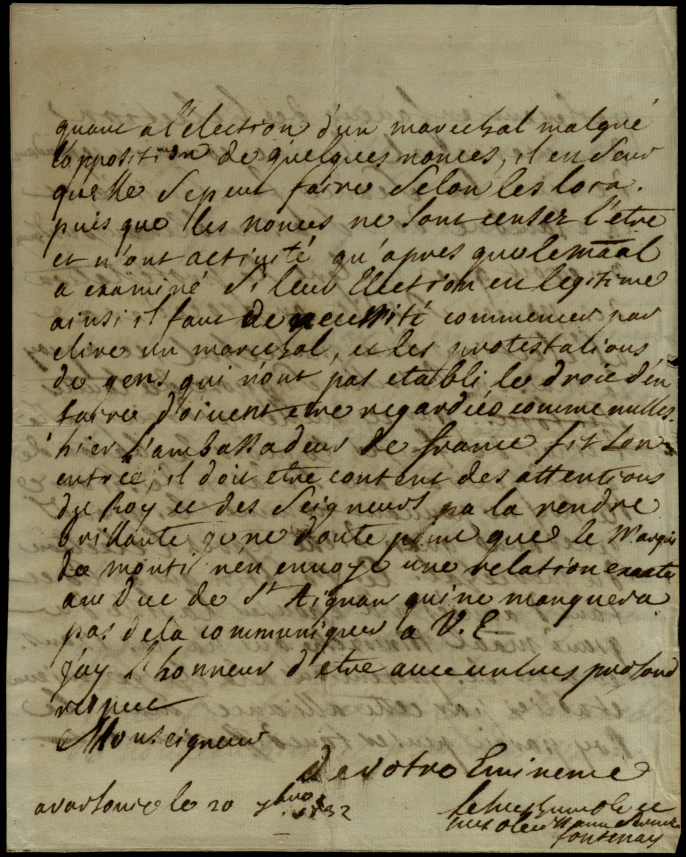 quant a l'élection d'un marechal malgré
l'opposition de quelques nonces, il en seur
quelle se peut faire selon les loix.
puis que les nonces ne sont censez l'être
et n'ont activité qu'apres que le maâl
a examiné si leur election est legitime
ainsi il faut de necessité commencer par
elire un marechal, et les protestations
de gens qui n'ont pas etabli le droit d'en
faire doivent etre regardées comme nulles.
hier l'ambassadeur de france fit son
entrée; il doit etre content des attentions
du Roy et des Seigneurs pa la rendre
brillante je ne doute point que le Marquis
de monti n'en envoye une relation exacte
au Duc de St Aignan qui ne manquera
pas de la communiquer a V. E
J'ay l'honneur d'etre avec un tres profond
respect
Monseigneur
De votre Eminence
a varsovie le 20 7bre 1732
le tres humble et
tres obeissant serviteur
fontenay